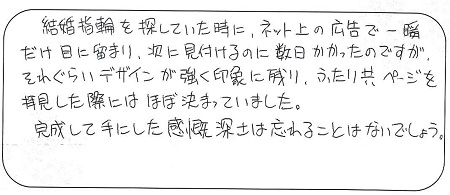 結婚指輪を探していた時に、ネット上の広告で一瞬
だけ目に留まり、次に見付けるのに数日かかったのですが、
それぐらいデザインが強く印象に残り、ふたり共、ページを
拝見した際にはほぼ決まっていました。
完成して手にした感慨深さは忘れることはないでしょう。